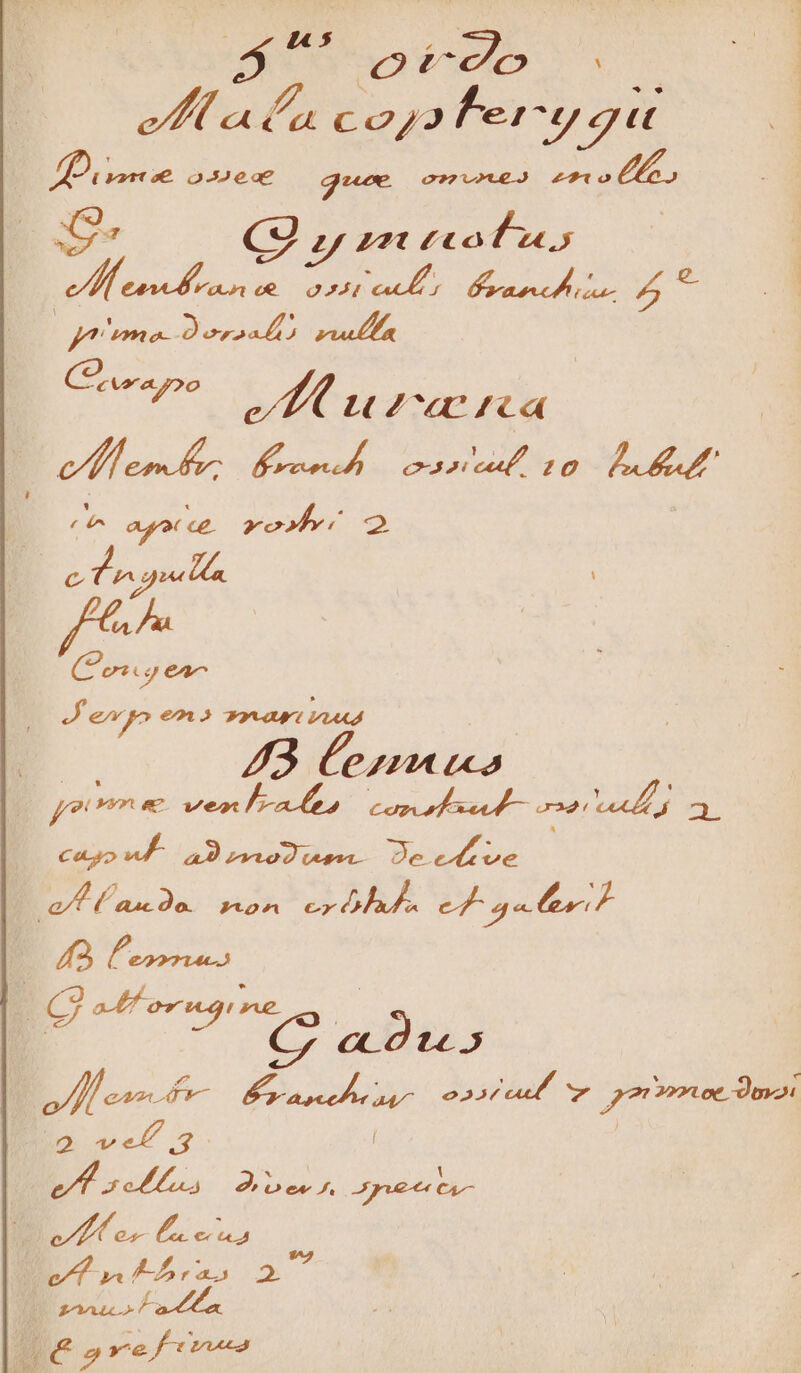 5us ordo
Malacopterygii
Pinnæ osseæ quæ omnes molles
G. Gymnotus
Membranæ ossiculis branchiar. 5e
pinna dorsalis nulla
Carapo
Muræna
Membr. branch ossicul. 10 tubuli
in apice rostri 2
Anguilla
fluta
Conger
Serpens marinus
Blennus
pinnæ ventrales constant ossiculis 2
caput admodum declive
Alauda non cristata et galerit
Blennus
Gattorugine
Gadus
Membr branchiar ossicul 7 pinnæ dorsi
2 vel 3
Asellus divers. specier
Merlucius
Anthias 2us
mustalla
Egrefinus